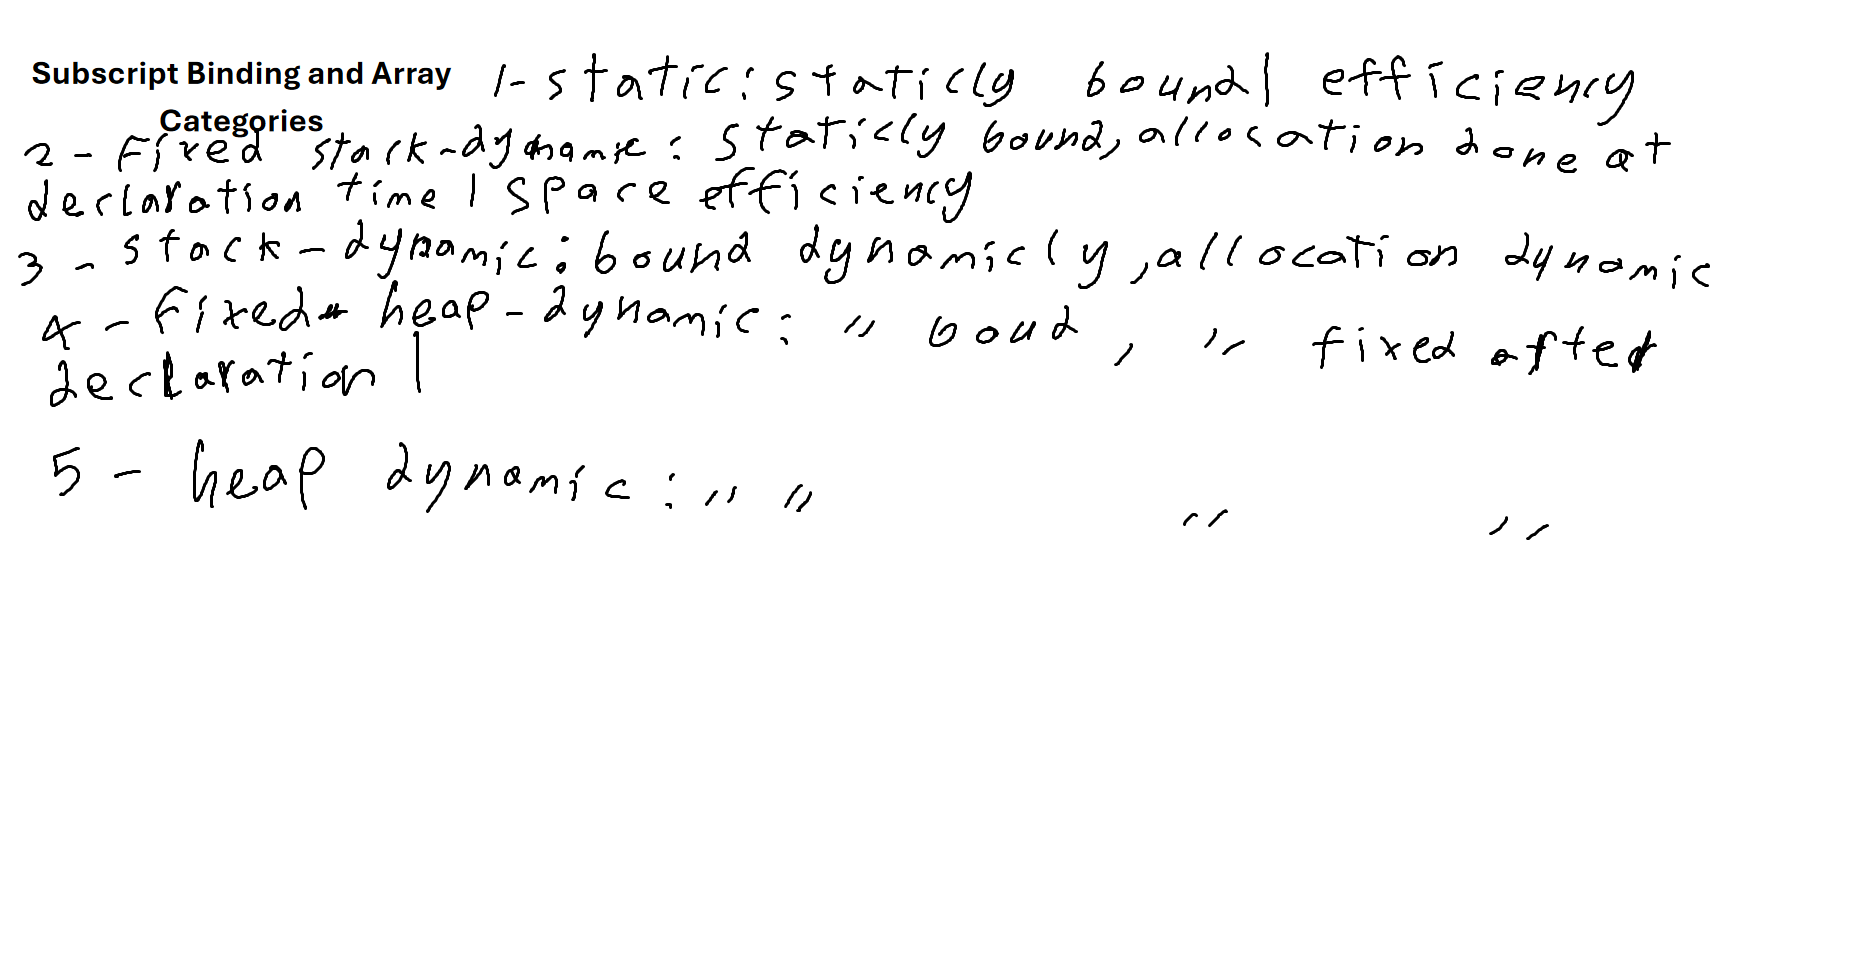 Subscript Binding and Array Categories
1- static: staticly bound| efficiency
2 - Fixed stack-dynamic: staticly bound, allocation done at
declaration time | space efficiency
3 - stack-dynamic: bound dynamicly, allocation dynamic
4 - Fixed heap-dynamic: " boud, " fixed after
declaration |
5 - heap dynamic: " " " "